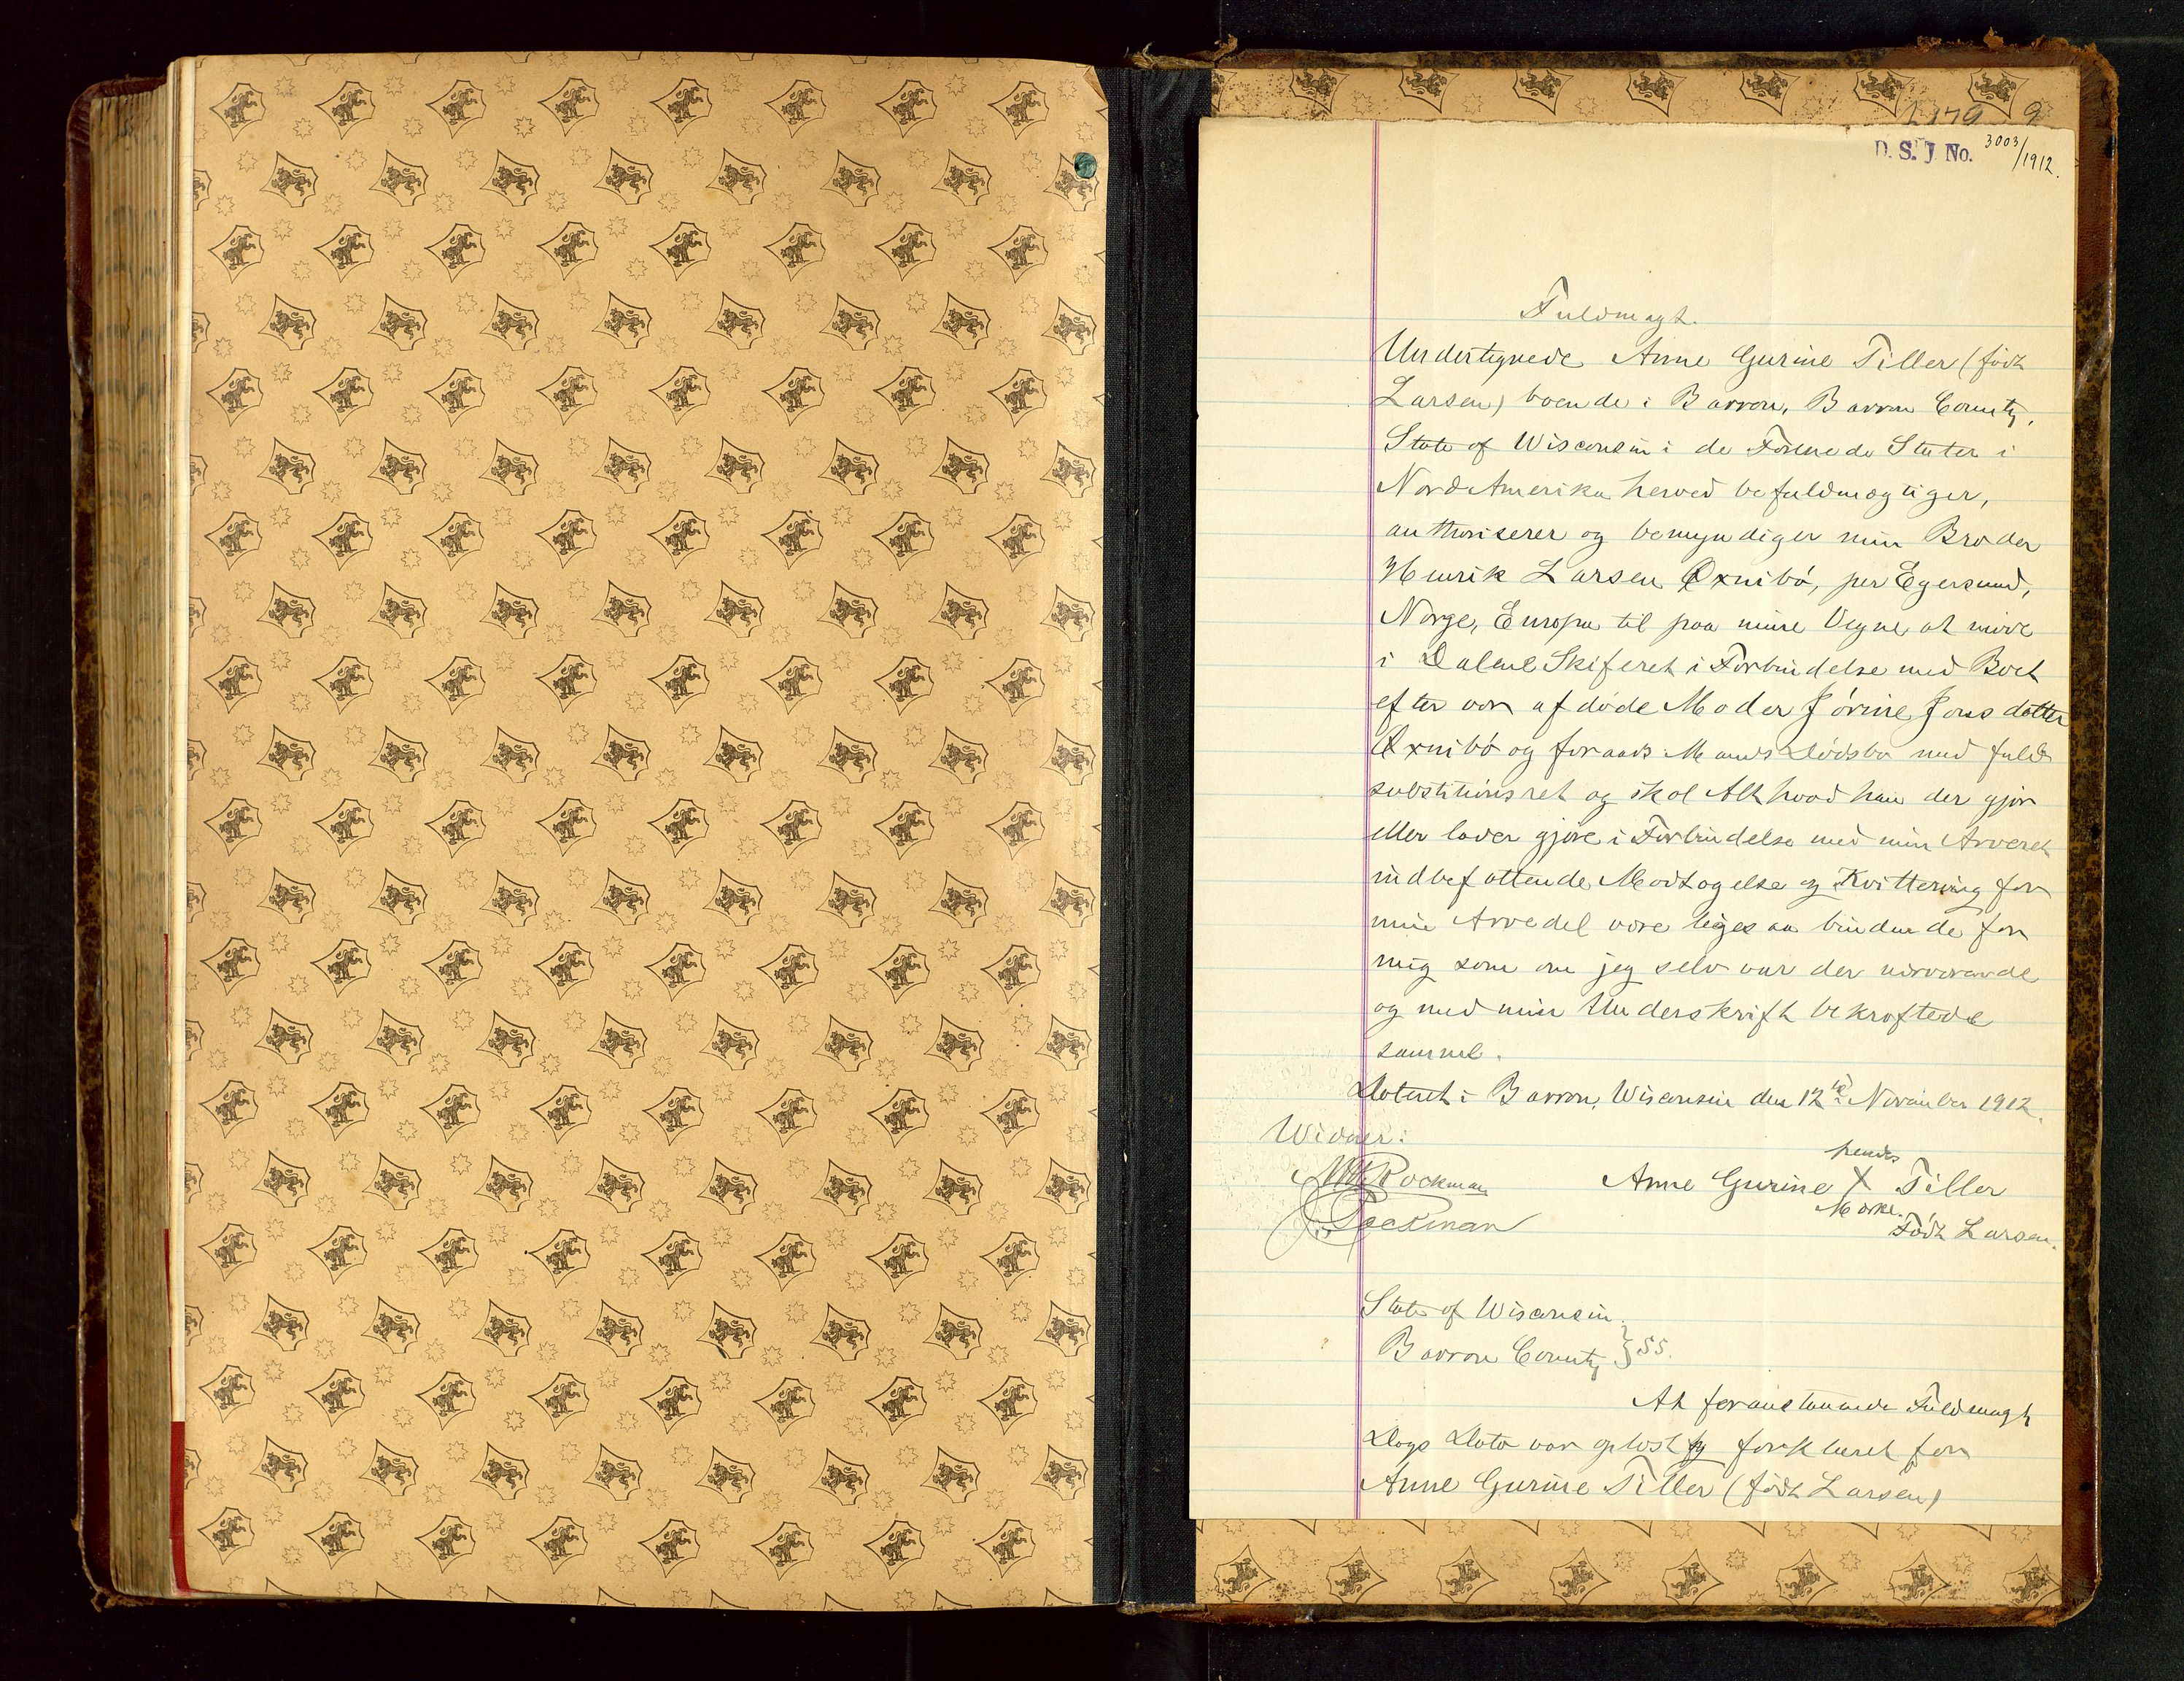 D. S. J. No. 3003/1912.
Fuldmagt.
Undertegnede Anne Gurine Tiller (født
Larsen) boende i Barron, Barron County,
State of Wisconsin i de Forenede Stater i
Nord Amerika herved befuldmægtiger,
authoriserer og bemyndiger min Broder
Henrik Larsen Øxnibø, per Egersund,
Norge, Europa til paa mine Vegne at møde
i Dalene Skifteret i Forbindelse med Boet
efter vor afdøde Moder Jørine Jonsdatter
Øxnibø og Mands Dødsbo med fuld
substitionsret og skal Alt hvad han der gjør
eller lader gjøre i Forbindelse med min Arveret
indbefattende Modtagelse og Kvittering for
min Arvedel være ligesaa bindende for
mig som om jeg selv var der nærværende
og med min Underskrift bekræftede
samme.
Dateret i Barron, Wisconsin den 12te November 1912.
Widner:
Rockman
hendes
Anne Gurine X Tiller
Mærke.
Født Larsen.
State of Wisconsin
Barron County } SS.
At foranstaaende Fuldmagt
Dags Dato var oplæst og forklaret for
Anne Gurine Tiller (født Larsen)